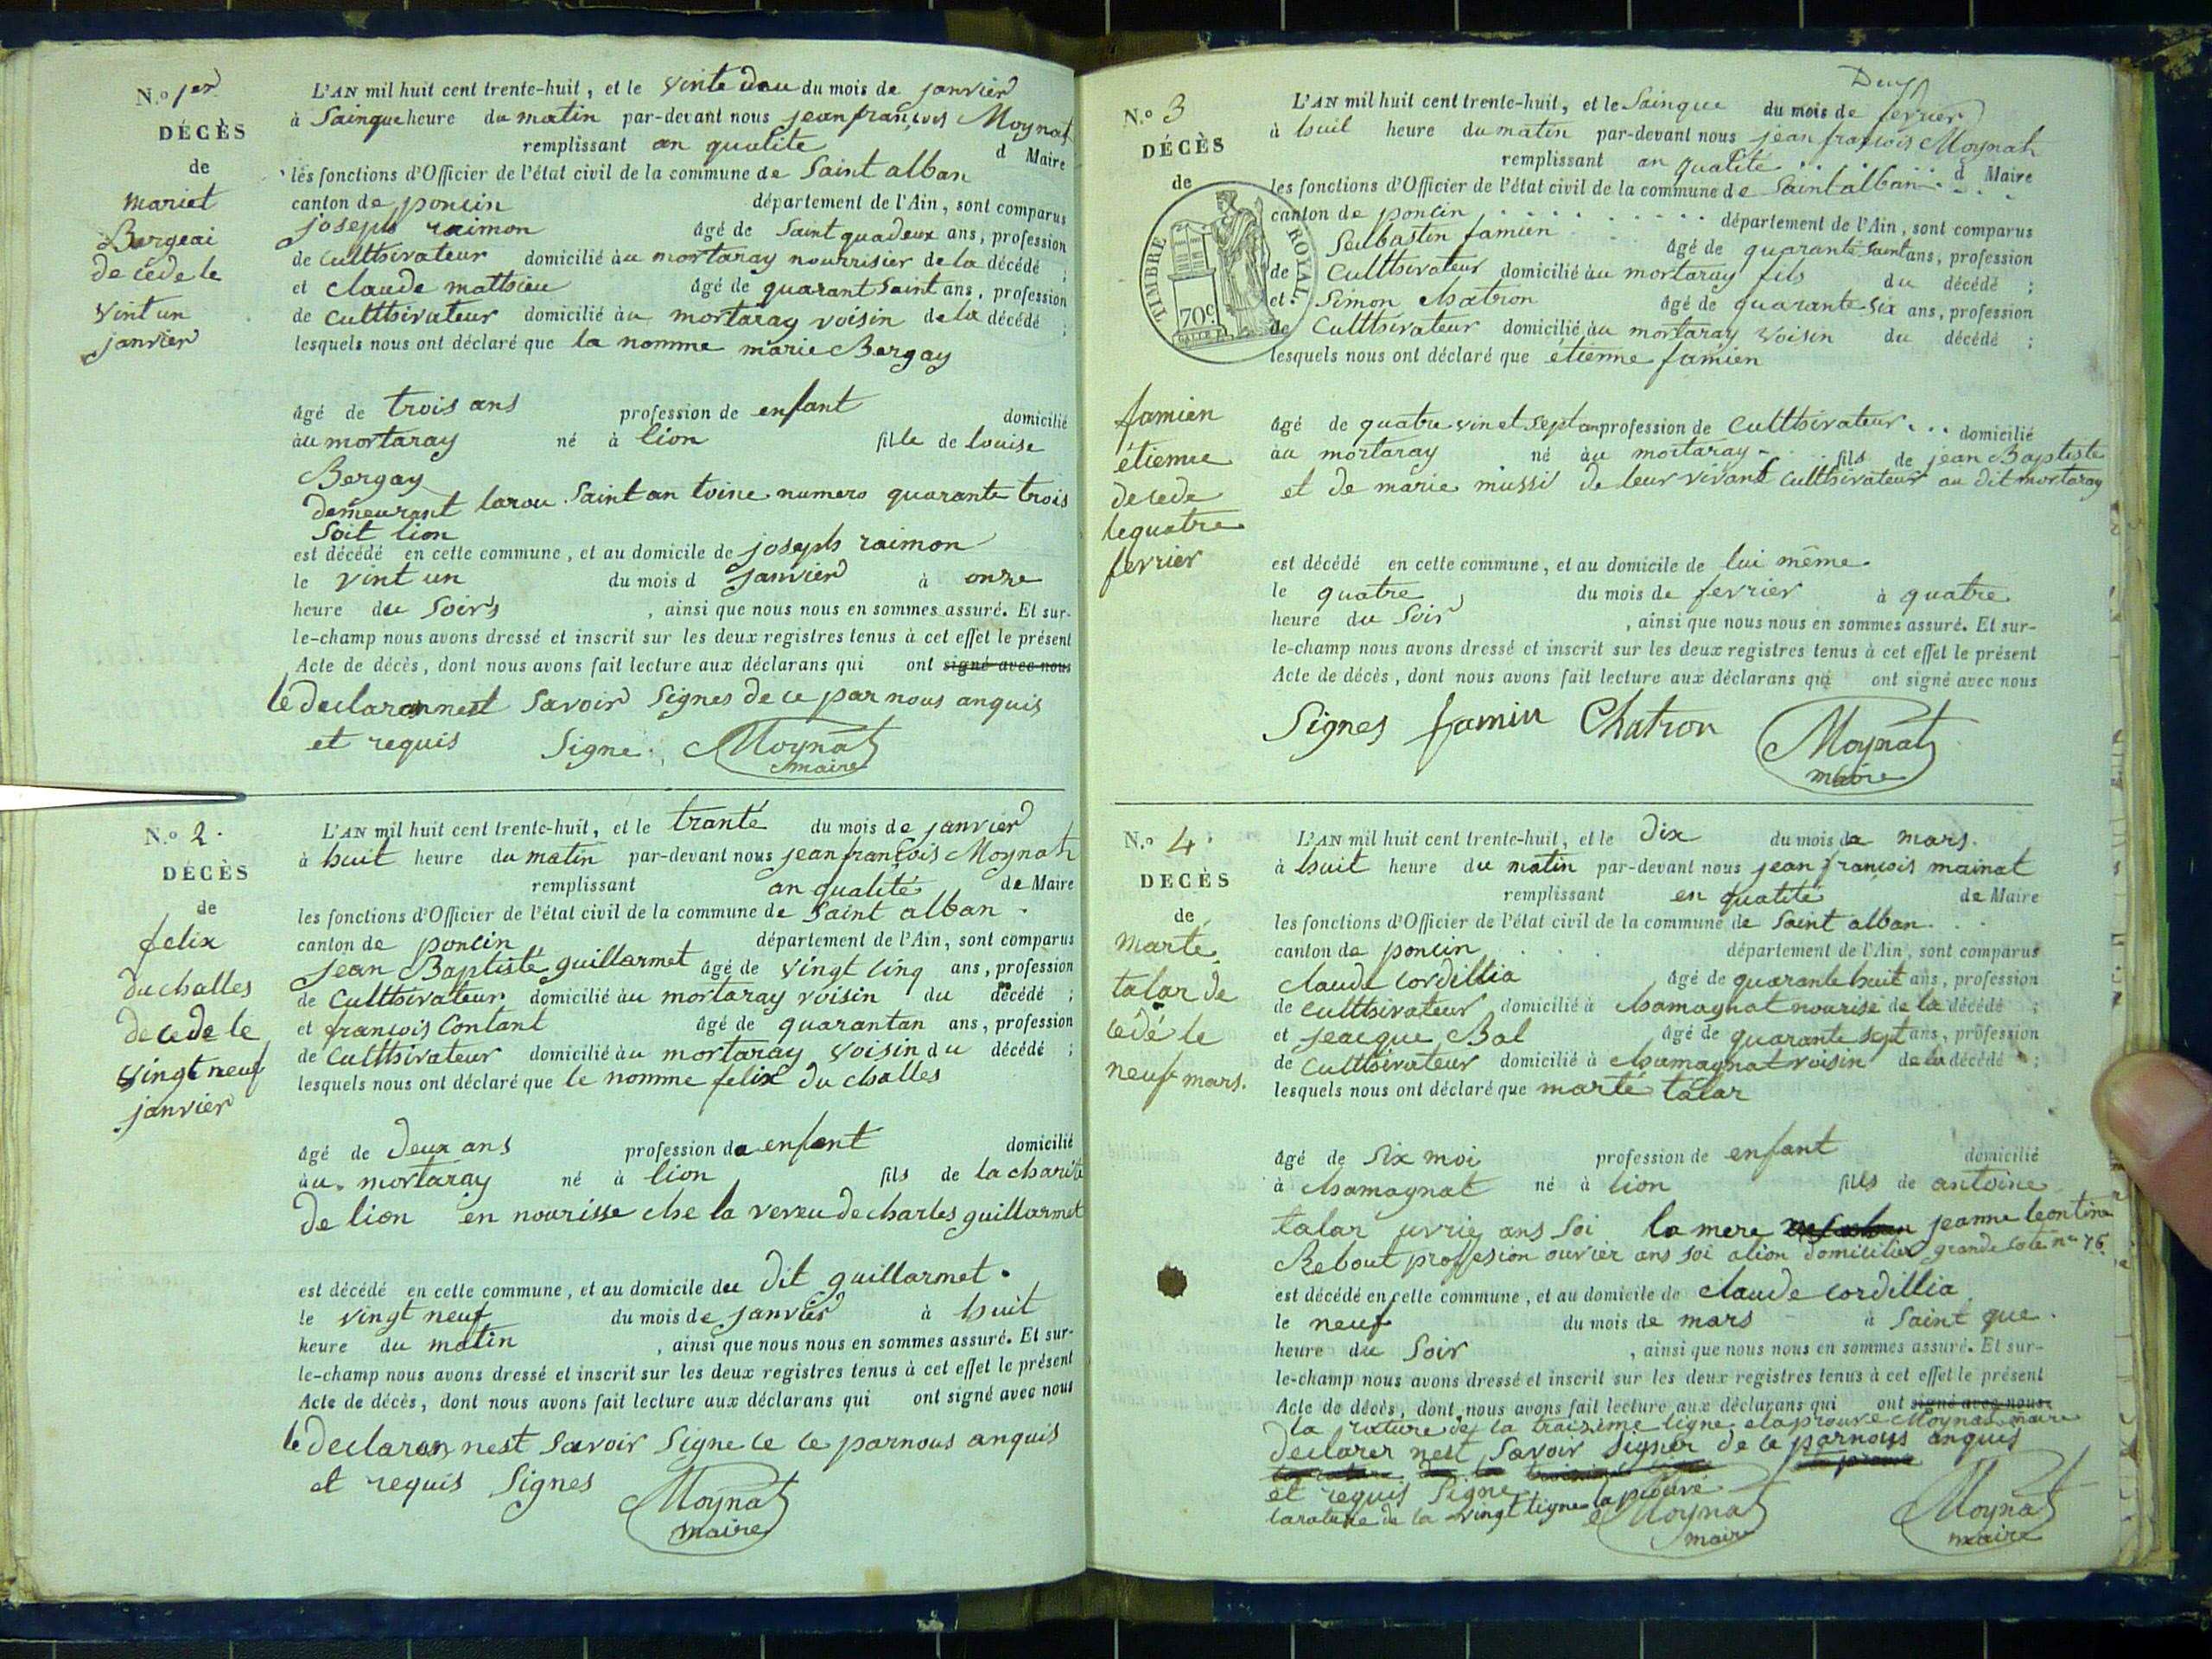 N.º 1er
DÉCÈS
de
mariet
Bergeai
de cede le
vint un
janvier
L'AN mil huit cent trente-huit, et le vinte deu du mois de janvier
à Sainque heure du matin par-devant nous jean françois Moynat
remplissant an qualite d Maire
les fonctions d'Officier de l'état civil de la commune de Saint alban
canton de poncin département de l'Ain, sont comparus
joseph raimon âgé de Saint quadeux ans, profession
de Cultthivateur domicilié àu mortaray nourrisier de la décédé ;
et claude matthieu âgé de quarant Saint ans, profession
de Cultthivateur domicilié àu mortaray voisin de la décédé ;
lesquels nous ont déclaré que la nomme marie Bergay
âgé de trois ans profession de enfant domicilié
àu mortaray né à lion fille de louise
Bergay
demeurant larou Saint an toine numero quarante trois
Soit lion
est décédé en cette commune, et au domicile de joseph raimon
le vint un du mois d janvier à onze
heure du Soir's , ainsi que nous nous en sommes assuré. Et sur-
le-champ nous avons dressé et inscrit sur les deux registres tenus à cet effet le présent
Acte de décès, dont nous avons fait lecture aux déclarans qui ont signé avec nous
le declaron nest Savoir Signes de ce par nous anquis
et requis Signe Moynat
maire
N.º 2.
DÉCÈS
de
felix
du challes
de cede le
vingt neuf
janvier
L'AN mil huit cent trente-huit, et le tranté du mois de janvier
à huit heure du matin par-devant nous jean françois Moynat
remplissant an qualité de Maire
les fonctions d'Officier de l'état civil de la commune de Saint alban
canton de poncin département de l'Ain, sont comparus
jean Baptiste guillarmet âgé de vingt cinq ans, profession
de Cultthivateur domicilié àu mortaray voisin du décédé ;
et françois Contant âgé de quarantan ans, profession
de Cultthivateur domicilié àu mortaray voisin du décédé ;
lesquels nous ont déclaré que le nomme felix du challes
âgé de deux ans profession de enfent domicilié
àu mortaray né à lion fils de la charité
de lion en nourisse che la veveu de charles guillarmet
est décédé en cette commune, et au domicile deu dit guillarmet.
le vingt neuf du mois de janvier à huit
heure du matin , ainsi que nous nous en sommes assuré. Et sur-
le-champ nous avons dressé et inscrit sur les deux registres tenus à cet effet le présent
Acte de décès, dont nous avons fait lecture aux déclarans qui ont signé avec nous
le declaron nest Savoir Signe ce ce parnous anquis
et requis Signes Moynat
maire
Deux
N.º 3
DÉCÈS
de
TIMBRE ROYAL
70c
famien
étienne
decede
le quatre
fevrier
L'AN mil huit cent trente-huit, et le Sainque du mois de fevrier
à huit heure du matin par-devant nous jean françois Moynat
remplissant an qualité d Maire
les fonctions d'Officier de l'état civil de la commune de Saint alban
canton de poncin département de l'Ain, sont comparus
Seubastin famien âgé de quarante Saint ans, profession
de Cultthivateur domicilié àu mortaray fils du décédé ;
et Simon chatron âgé de quarante Six ans, profession
de Cultthivateur domicilié àu mortaray voisin du décédé ;
lesquels nous ont déclaré que étienne famien
âgé de quatre vin et Sept an profession de Cultthivateur domicilié
àu mortaray né àu mortaray fils de jean Baptiste
et de marie mussi de leur vivant Cultthivateur au dit mortaray
est décédé en cette commune, et au domicile de lui même
le quatre du mois de fevrier à quatre
heure du Soir , ainsi que nous nous en sommes assuré. Et sur-
le-champ nous avons dressé et inscrit sur les deux registres tenus à cet effet le présent
Acte de décès, dont nous avons fait lecture aux déclarans qui ont signé avec nous
Signes famin Chatron Moynat
maire
N.º 4.
DECÈS
de
marte
talar de
cedé le
neuf mars.
L'AN mil huit cent trente-huit, et le dix du mois de mars.
à huit heure du matin par-devant nous jean françois mainat
remplissant en qualité de Maire
les fonctions d'Officier de l'état civil de la commune de Saint alban
canton de poncin département de l'Ain, sont comparus
claude cordillia âgé de quarante huit ans, profession
de cultthivateur domicilié à chamagnat nourise de la décédé ;
et jeacque Bal âgé de quarante sept ans, profession
de Cultthivateur domicilié à chamagnat voisin de la décédé ;
lesquels nous ont déclaré que marte talar
âgé de Six moi profession de enfant domicilié
à chamagnat né à lion fills de antoine
talar uvrie ans Soi la mere jeanne leontine
Rebout proffesion ouvrier ans soi alion domicilier grande cote no 76
est décédé en cette commune, et au domicile de claude cordillia
le neuf du mois de mars à Saint que
heure du Soir , ainsi que nous nous en sommes assuré. Et sur-
le-champ nous avons dressé et inscrit sur les deux registres tenus à cet effet le présent
Acte de décès, dont nous avons fait lecture aux déclarans qui ont signé avec nous
la rature de la traizieme ligne elaprouve Moynat maire
declarer nest Savoir Signer de ce parnous anquis
et requis Signe
la rature de la vingt ligne laprouvé Moynat Moynat
maire maire